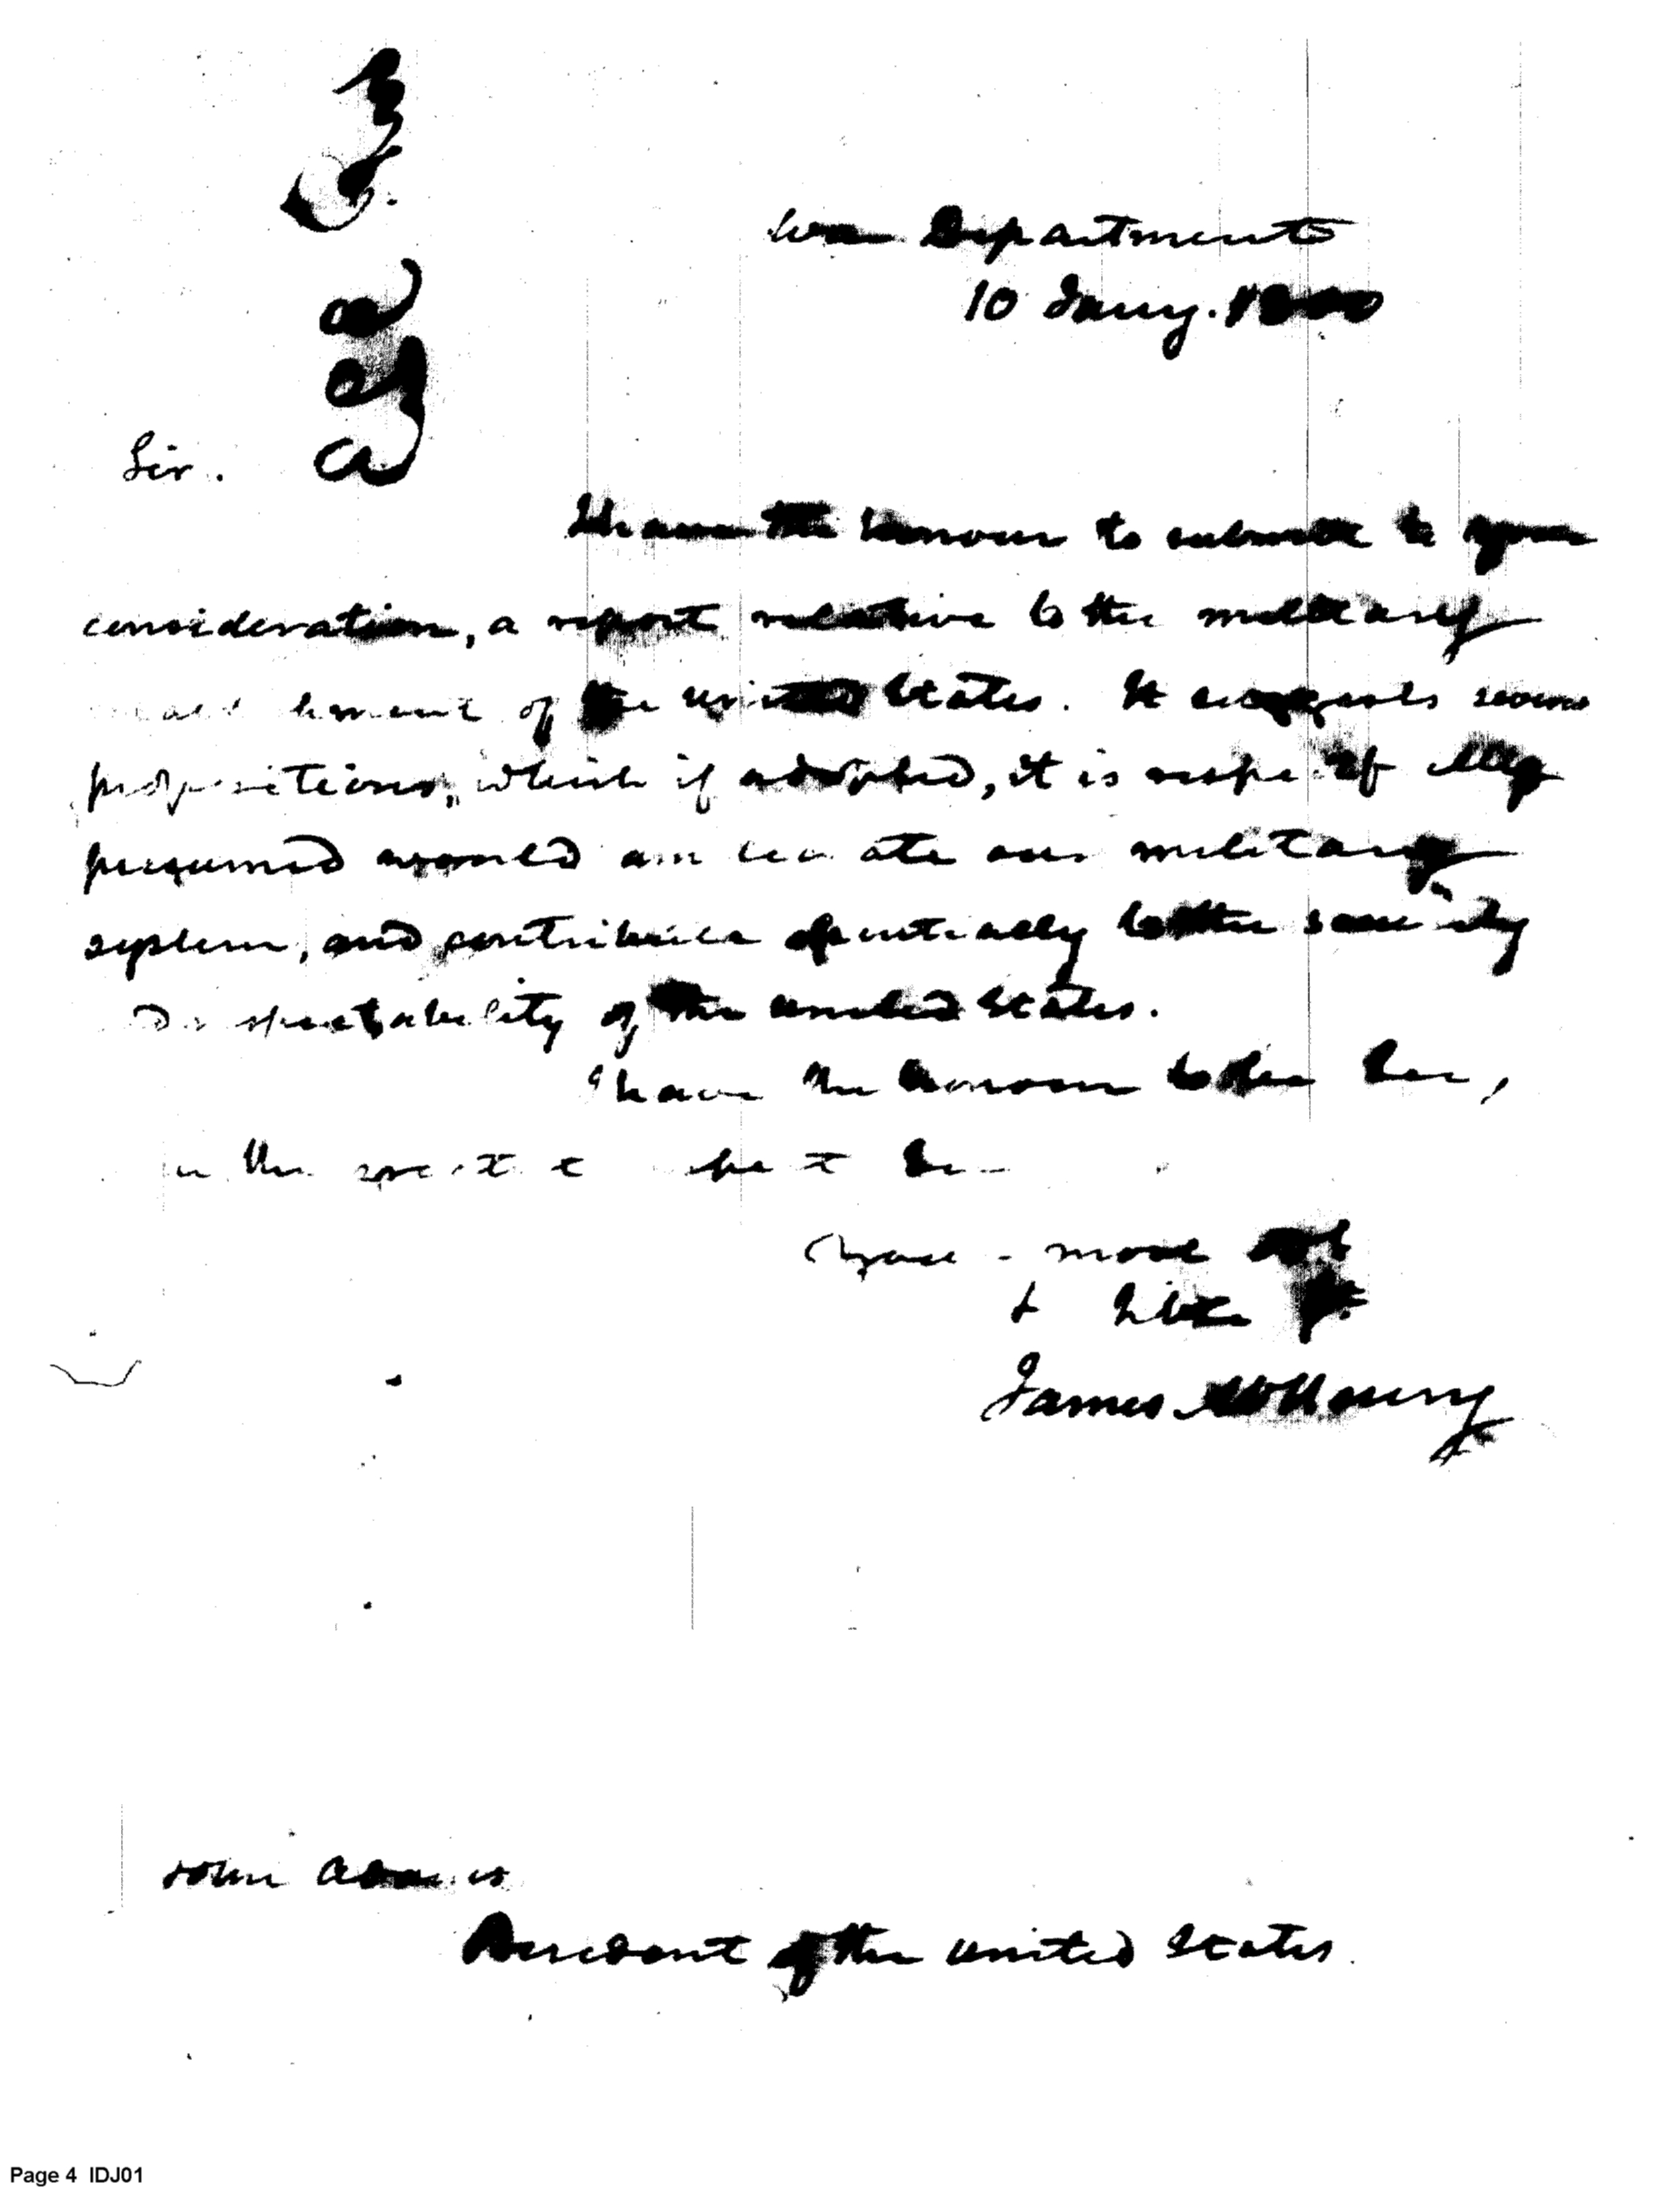 War Department
10 Jany. 1800
Sir.
I have the honour to submit to your
consideration, a report relative to the military
of the United States. It suggests some
propositions, which if adopted, it is respectfully
presumed would ameliorate our military
system, and contribute essentially to the security
respectability of the United States.
I have the honour to be
the
most obt
& hble st
James McHenry
John Adams
President of the United States.
Page 4 IDJ01